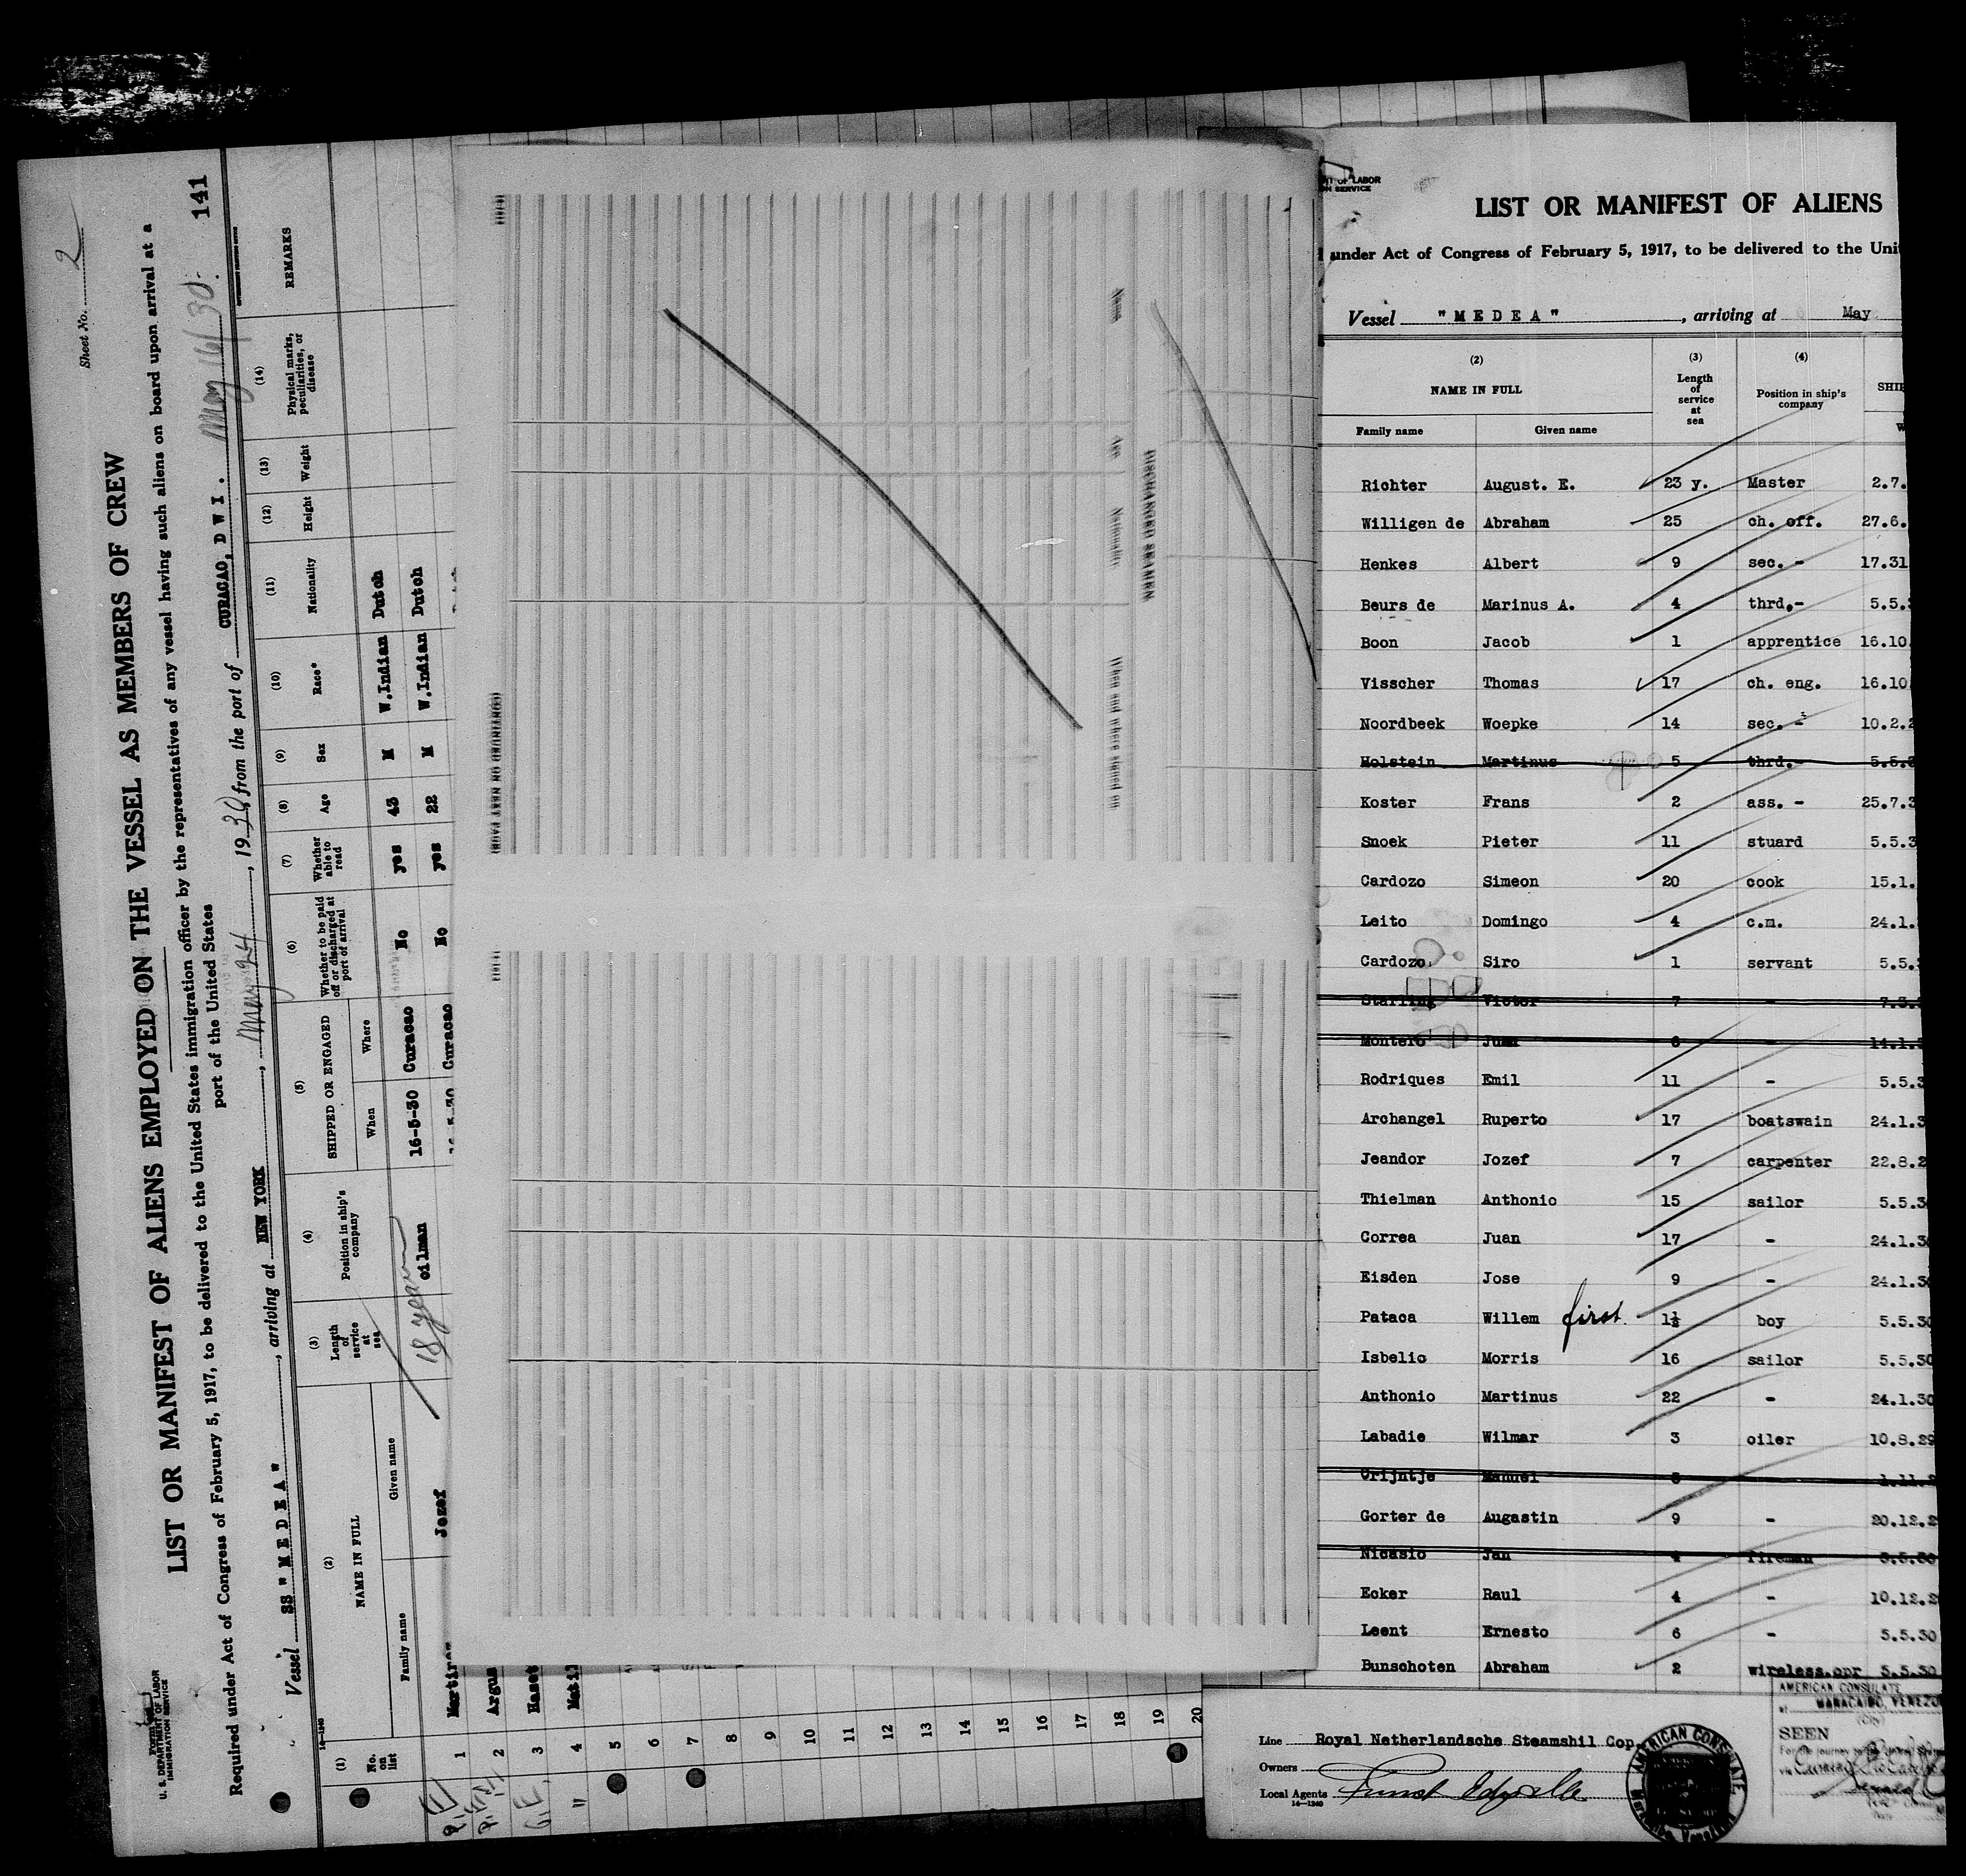 Sheet No. 2
U. S. DEPARTMENT OF LABOR
IMMIGRATION SERVICE
LIST OR MANIFEST OF ALIENS EMPLOYED ON THE VESSEL AS MEMBERS OF CREW
141
Required under Act of Congress of February 5, 1917, to be delivered to the United States immigration officer by the representatives of any vessel having such aliens on board upon arrival at a
port of the United States
Vessel SS "MEDEA", arriving at NEW YORK, May 24, 1930, from the port of CURACAO, D W I. May 16/30.
14-1240
(1) (2) (3) (4) (5) (6) (7) (8) (9) (10) (11) (12) (13) (14)
No. on list
NAME IN FULL
Family name Given name
Length of service at sea
Position in ship's company
SHIPPED OR ENGAGED
When Where
Whether to be paid off or discharged at port of arrival
Whether able to read
Age
Sex
Race*
Nationality
Height
Weight
Physical marks, peculiarities, or disease
REMARKS
1 Jozef 18 years oilman 16-5-30 Curacao No yes 43 M W.Indian Dutch
2 Argus Curacao No yes 22 M W.Indian Dutch
3
4
5
6
7
8
9
10
11
12
13
14
15
16
17
18
19
20
Name Age Nationality When and where signed on
DISCHARGED SEAMEN
(CONTINUED ON NEXT PAGE)
OF LABOR
SERVICE
LIST OR MANIFEST OF ALIENS
under Act of Congress of February 5, 1917, to be delivered to the
Vessel "MEDEA", arriving at May
(2) (3) (4)
NAME IN FULL
Length of service at sea
Position in ship's company
Family name Given name
Richter August. E. 23 y. Master 2.7.
Willigen de Abraham 25 ch. off. 27.6.
Henkes Albert 9 sec. - 17.31
Beurs de Marinus A. 4 thrd.- 5.5.
Boon Jacob 1 apprentice 16.10
Visscher Thomas 17 ch. eng. 16.10
Noordbeek Woepke 14 sec. - 10.2.2
Holstein Martinus 5 thrd.- 5.5.3
Koster Frans 2 ass. - 25.7.3
Snoek Pieter 11 stuard 5.5.3
Cardozo Simeon 20 cook 15.1.
Leito Domingo 4 c.m. 24.1.
Cardozo Siro 1 servant 5.5.
Starling Victor 7 - 7.3.
Montero Juan 6 - 14.1.
Rodriques Emil 11 - 5.5.3
Archangel Ruperto 17 boatswain 24.1.3
Jeandor Jozef 7 carpenter 22.8.2
Thielman Anthonio 15 sailor 5.5.30
Correa Juan 17 - 24.1.30
Eisden Jose 9 - 24.1.30
Pataca Willem first 1½ boy 5.5.30
Isbelio Morris 16 sailor 5.5.30
Anthonio Martinus 22 - 24.1.30
Labadie Wilmar 3 oiler 10.8.29
Crijntje Manuel 8 - 1.11.2
Gorter de Augastin 9 - 20.12.2
Nicasio Jan 4 fireman 5.5.30
Ecker Raul 4 - 10.12.2
Leent Ernesto 6 - 5.5.30
Bunschoten Abraham 2 wireless.opr 5.5.30
Line Royal Netherlandsche Steamshil Cop.
Owners
Local Agents
14-1240
AMERICAN CONSULATE
AMERICAN CONSULATE
MARACAIBO, VENEZU
(City)
SEEN
For the journey to the United States